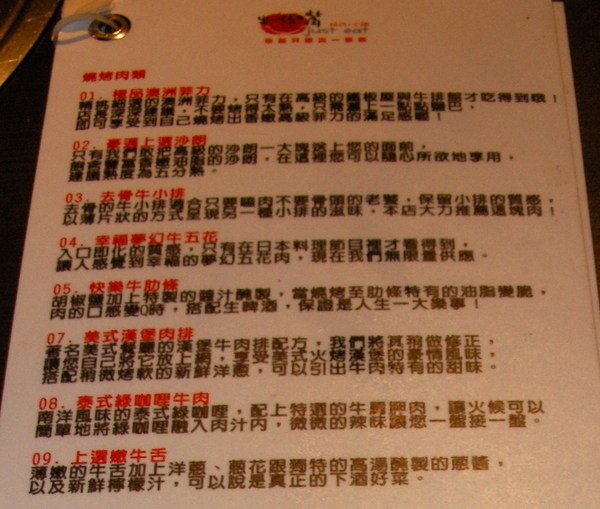 燒烤肉類
01. 極品澳洲菲力
精挑細選的澳洲菲力，只有在高級的鐵板屋與牛排館才吃得到哦！
店長深深建議，不要烤得太熟，只需灑上一點點鹽巴，
即可享受到自己燒烤出香嫩高級菲力的滿足感喔！
02. 豪邁上選沙朗
只有我們敢把高級的沙朗一大塊送上您的面前，
飽含豐富香嫩油脂的沙朗，在這裡您可以隨心所欲地享用，
建議熟度為五分熟。
03. 去骨牛小排
去骨的牛小排適合只要嗑肉不要骨頭的老饕，保留小排的質感，
以薄片狀的方式呈現另一種小排的滋味，本店大力推薦這塊肉！
04. 幸福夢幻牛五花
入口即化的質感，只有在日本料理節目裡才看得到，
讓人感覺到幸福的夢幻五花肉，現在我們無限量供應。
05. 快樂牛肋條
胡椒鹽加上特製的醬汁醃製，當燒烤至肋條特有的油脂變脆，
肉的口感變Q時，搭配生啤酒，保證是人生一大樂事！
07. 美式漢堡肉排
著名美式餐廳的漢堡牛肉排配方，我們將其稍做修正，
讓您自己將它放上網，享受美式火烤漢堡的豪情風味，
搭配稍微烤軟的新鮮洋蔥，可以引出牛肉特有的甜味。
08. 泰式綠咖哩牛肉
南洋風味的泰式綠咖哩，配上特選的牛肩胛肉，讓火候可以
簡單地將綠咖哩融入肉汁內，微微的辣味讓您一盤接一盤。
09. 上選嫩牛舌
薄嫩的牛舌加上洋蔥、蔥花跟獨特的高湯醃製的蔥醬，
以及新鮮檸檬汁，可以說是真正的下酒好菜。